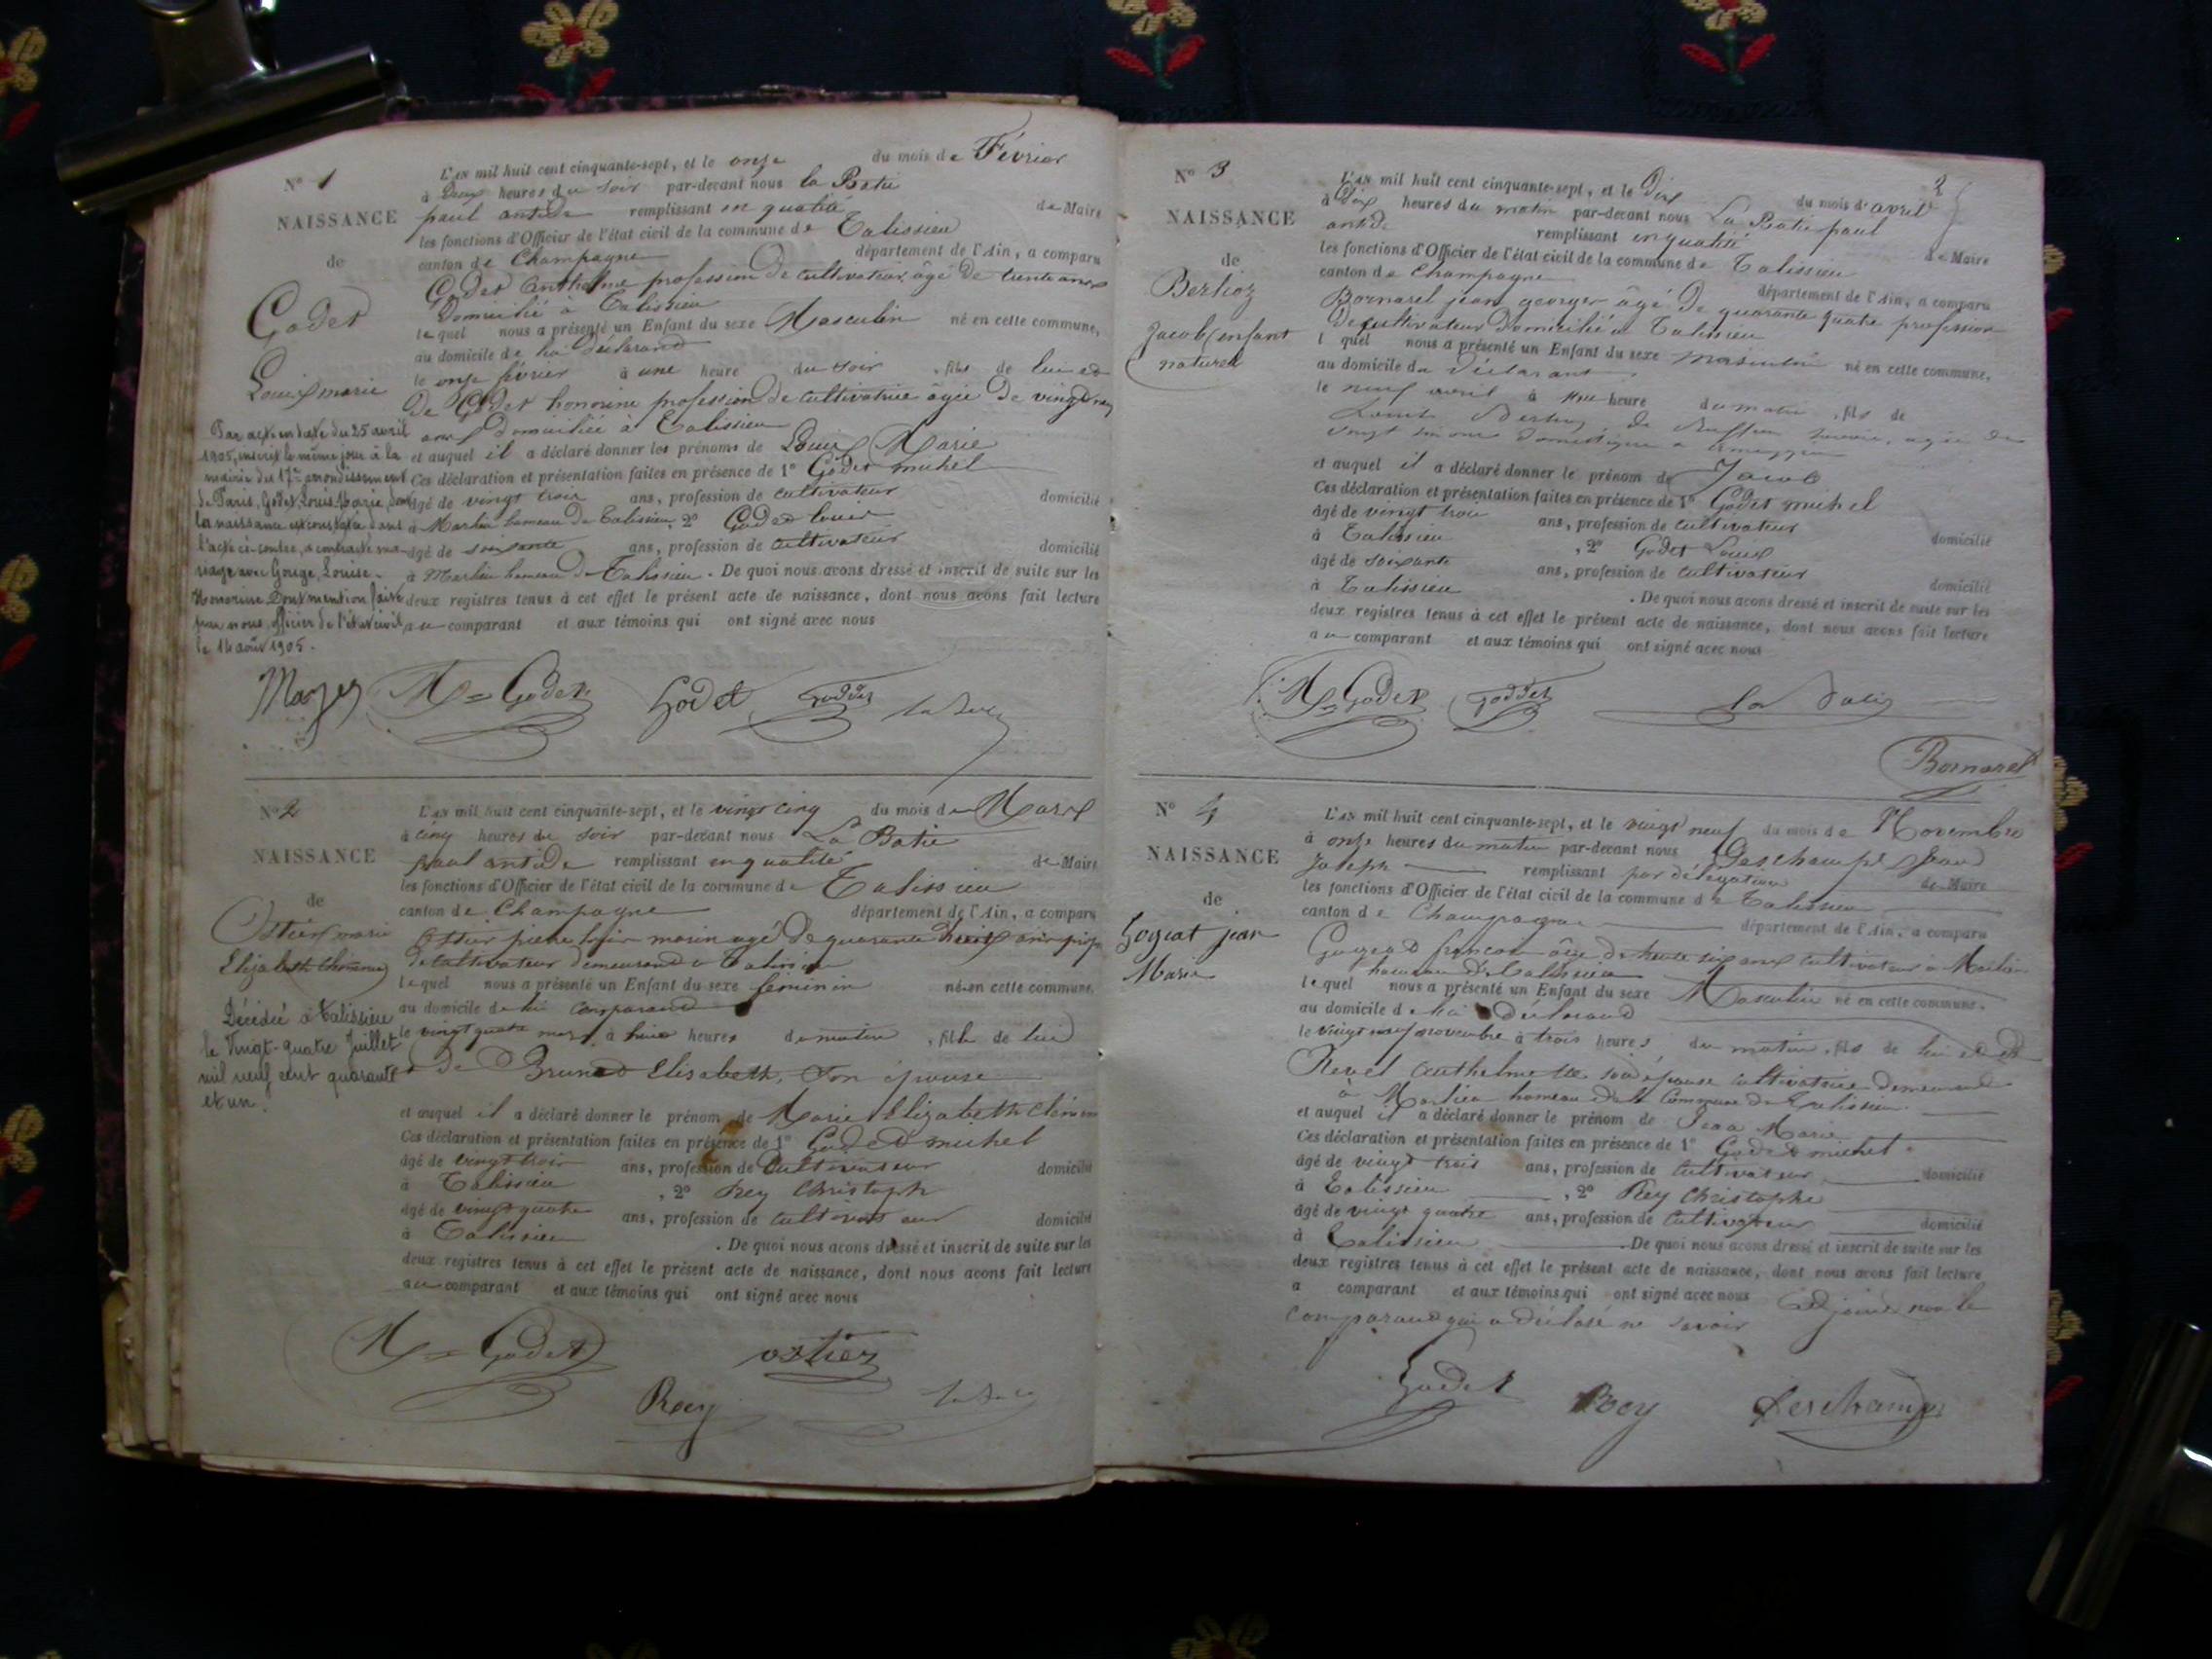 N° 1
NAISSANCE
de
Godet
Louis marie
Par acte en date du 25 avril
1905, inscrit le même jour à la
mairie du 17e arrondissement
de Paris, Godet, Louis Marie, dont
la naissance est constatée dans
l'acte ci-contre, a contracté ma-
riage avec Gouge, Louise-
Honorine. Dont mention faite
par nous, officier de l'état civil,
le 14 août 1905.
L'AN mil huit cent cinquante-sept, et le onze du mois de Février
à Deux heures du soir par-devant nous la Batie
paul antide remplissant en qualité de Maire
les fonctions d'Officier de l'état civil de la commune de Talissieu
canton de Champagne département de l'Ain, a comparu
Godet Anthelme profession de cultivateur âgé de trente ans
Domicilié à Talissieu
lequel nous a présenté un Enfant du sexe Masculin né en cette commune,
au domicile de lui déclarand
le onze février à une heure du soir, fils de lui et
de Godet honorine profession de cultivatrice âgée de vingt
ans domiciliée à Talissieu
et auquel il a déclaré donner les prénoms de Louis Marie
Ces déclaration et présentation faites en présence de 1° Godet michel
âgé de vingt trois ans, profession de cultivateur domicilié
à Marlieu hameau de Talissieu 2° Godet louis
âgé de soixante ans, profession de cultivateur domicilié
à Marlieu hameau de Talissieu. De quoi nous avons dressé et inscrit de suite sur les
deux registres tenus à cet effet le présent acte de naissance, dont nous avons fait lecture
au comparant et aux témoins qui ont signé avec nous
M Godet Godet Goddet
N° 2
NAISSANCE
de
Ostier marie
Elizabeth
Décédée à Talissieu
le Vingt-quatre Juillet
mil neuf cent quarante
et un.
L'AN mil huit cent cinquante-sept, et le vingt cinq du mois de Mars
à cinq heures du soir par-devant nous La Batie
paul antide remplissant en qualité de Maire
les fonctions d'Officier de l'état civil de la commune de Talissieu
canton de Champagne département de l'Ain, a comparu
Ostier pierre marin agé de quarante huit ans
de cultivateur demeurand à Talissieu
lequel nous a présenté un Enfant du sexe féminin né en cette commune,
au domicile de lui comparand
le vingt quatre mars à heures du matin, fille de lui
et de Brunet Elisabeth, Son épouse
et auquel il a déclaré donner le prénom de Marie Elizabeth
Ces déclaration et présentation faites en présence de 1° Godet michel
âgé de vingt trois ans, profession de Cultivateur domicilié
à Talissieu, 2° Rey Christoph
âgé de vingt quatre ans, profession de cultivateur domicilié
à Talissieu. De quoi nous avons dressé et inscrit de suite sur les
deux registres tenus à cet effet le présent acte de naissance, dont nous avons fait lecture
au comparant et aux témoins qui ont signé avec nous
M Godet ostier
Rey
2
N° 3
NAISSANCE
de
Berlioz
Jacob (enfant
naturel
L'AN mil huit cent cinquante-sept, et le Dix du mois d'avril
à Dix heures du matin par-devant nous La Batie paul
antide remplissant en qualité de Maire
les fonctions d'Officier de l'état civil de la commune de Talissieu
canton de Champagne département de l'Ain, a comparu
Bornarel jean georges âgé de quarante quatre profession
de cultivateur Domicilié à Talissieu
lequel nous a présenté un Enfant du sexe masculin né en cette commune,
au domicile du déclarant
le neuf avril à heure du matin, fils de
de agée de
vingt domestique à
et auquel il a déclaré donner le prénom de Jacob
Ces déclaration et présentation faites en présence de 1° Godet michel
âgé de vingt trois ans, profession de cultivateur domicilié
à Talissieu, 2° Godet Louis
âgé de soixante ans, profession de cultivateur domicilié
à Talissieu. De quoi nous avons dressé et inscrit de suite sur les
deux registres tenus à cet effet le présent acte de naissance, dont nous avons fait lecture
au comparant et aux témoins qui ont signé avec nous
M Godet Goddet la Batie
Bornarel
N° 4
NAISSANCE
de
Gogeat jean
Marie
L'AN mil huit cent cinquante-sept, et le vingt neuf du mois de Novembre
à onze heures du matin par-devant nous Deschamps Jean
Joseph remplissant par délégation de Maire
les fonctions d'Officier de l'état civil de la commune de Talissieu
canton de Champagne département de l'Ain, a comparu
françois âgé de trente six ans cultivateur à Marlieu
hameau de Talissieu
lequel nous a présenté un Enfant du sexe Masculin né en cette commune,
au domicile de lui déclarand
le vingt neuf novembre à trois heures du matin, fils de lui et de
Revel Anthelmette son épouse cultivatrice demeurand
à Marlieu hameau de la Commune de Talissieu
et auquel il a déclaré donner le prénom de Jean Marie
Ces déclaration et présentation faites en présence de 1° Godet michel
âgé de vingt trois ans, profession de Cultivateur domicilié
à Talissieu, 2° Rey Christophe
âgé de vingt quatre ans, profession de Cultivateur domicilié
à Talissieu. De quoi nous avons dressé et inscrit de suite sur les
deux registres tenus à cet effet le présent acte de naissance, dont nous avons fait lecture
a comparant et aux témoins qui ont signé avec nous Adjoint non le
comparand qui a déclaré ne savoir
Godet Rey Deschamps